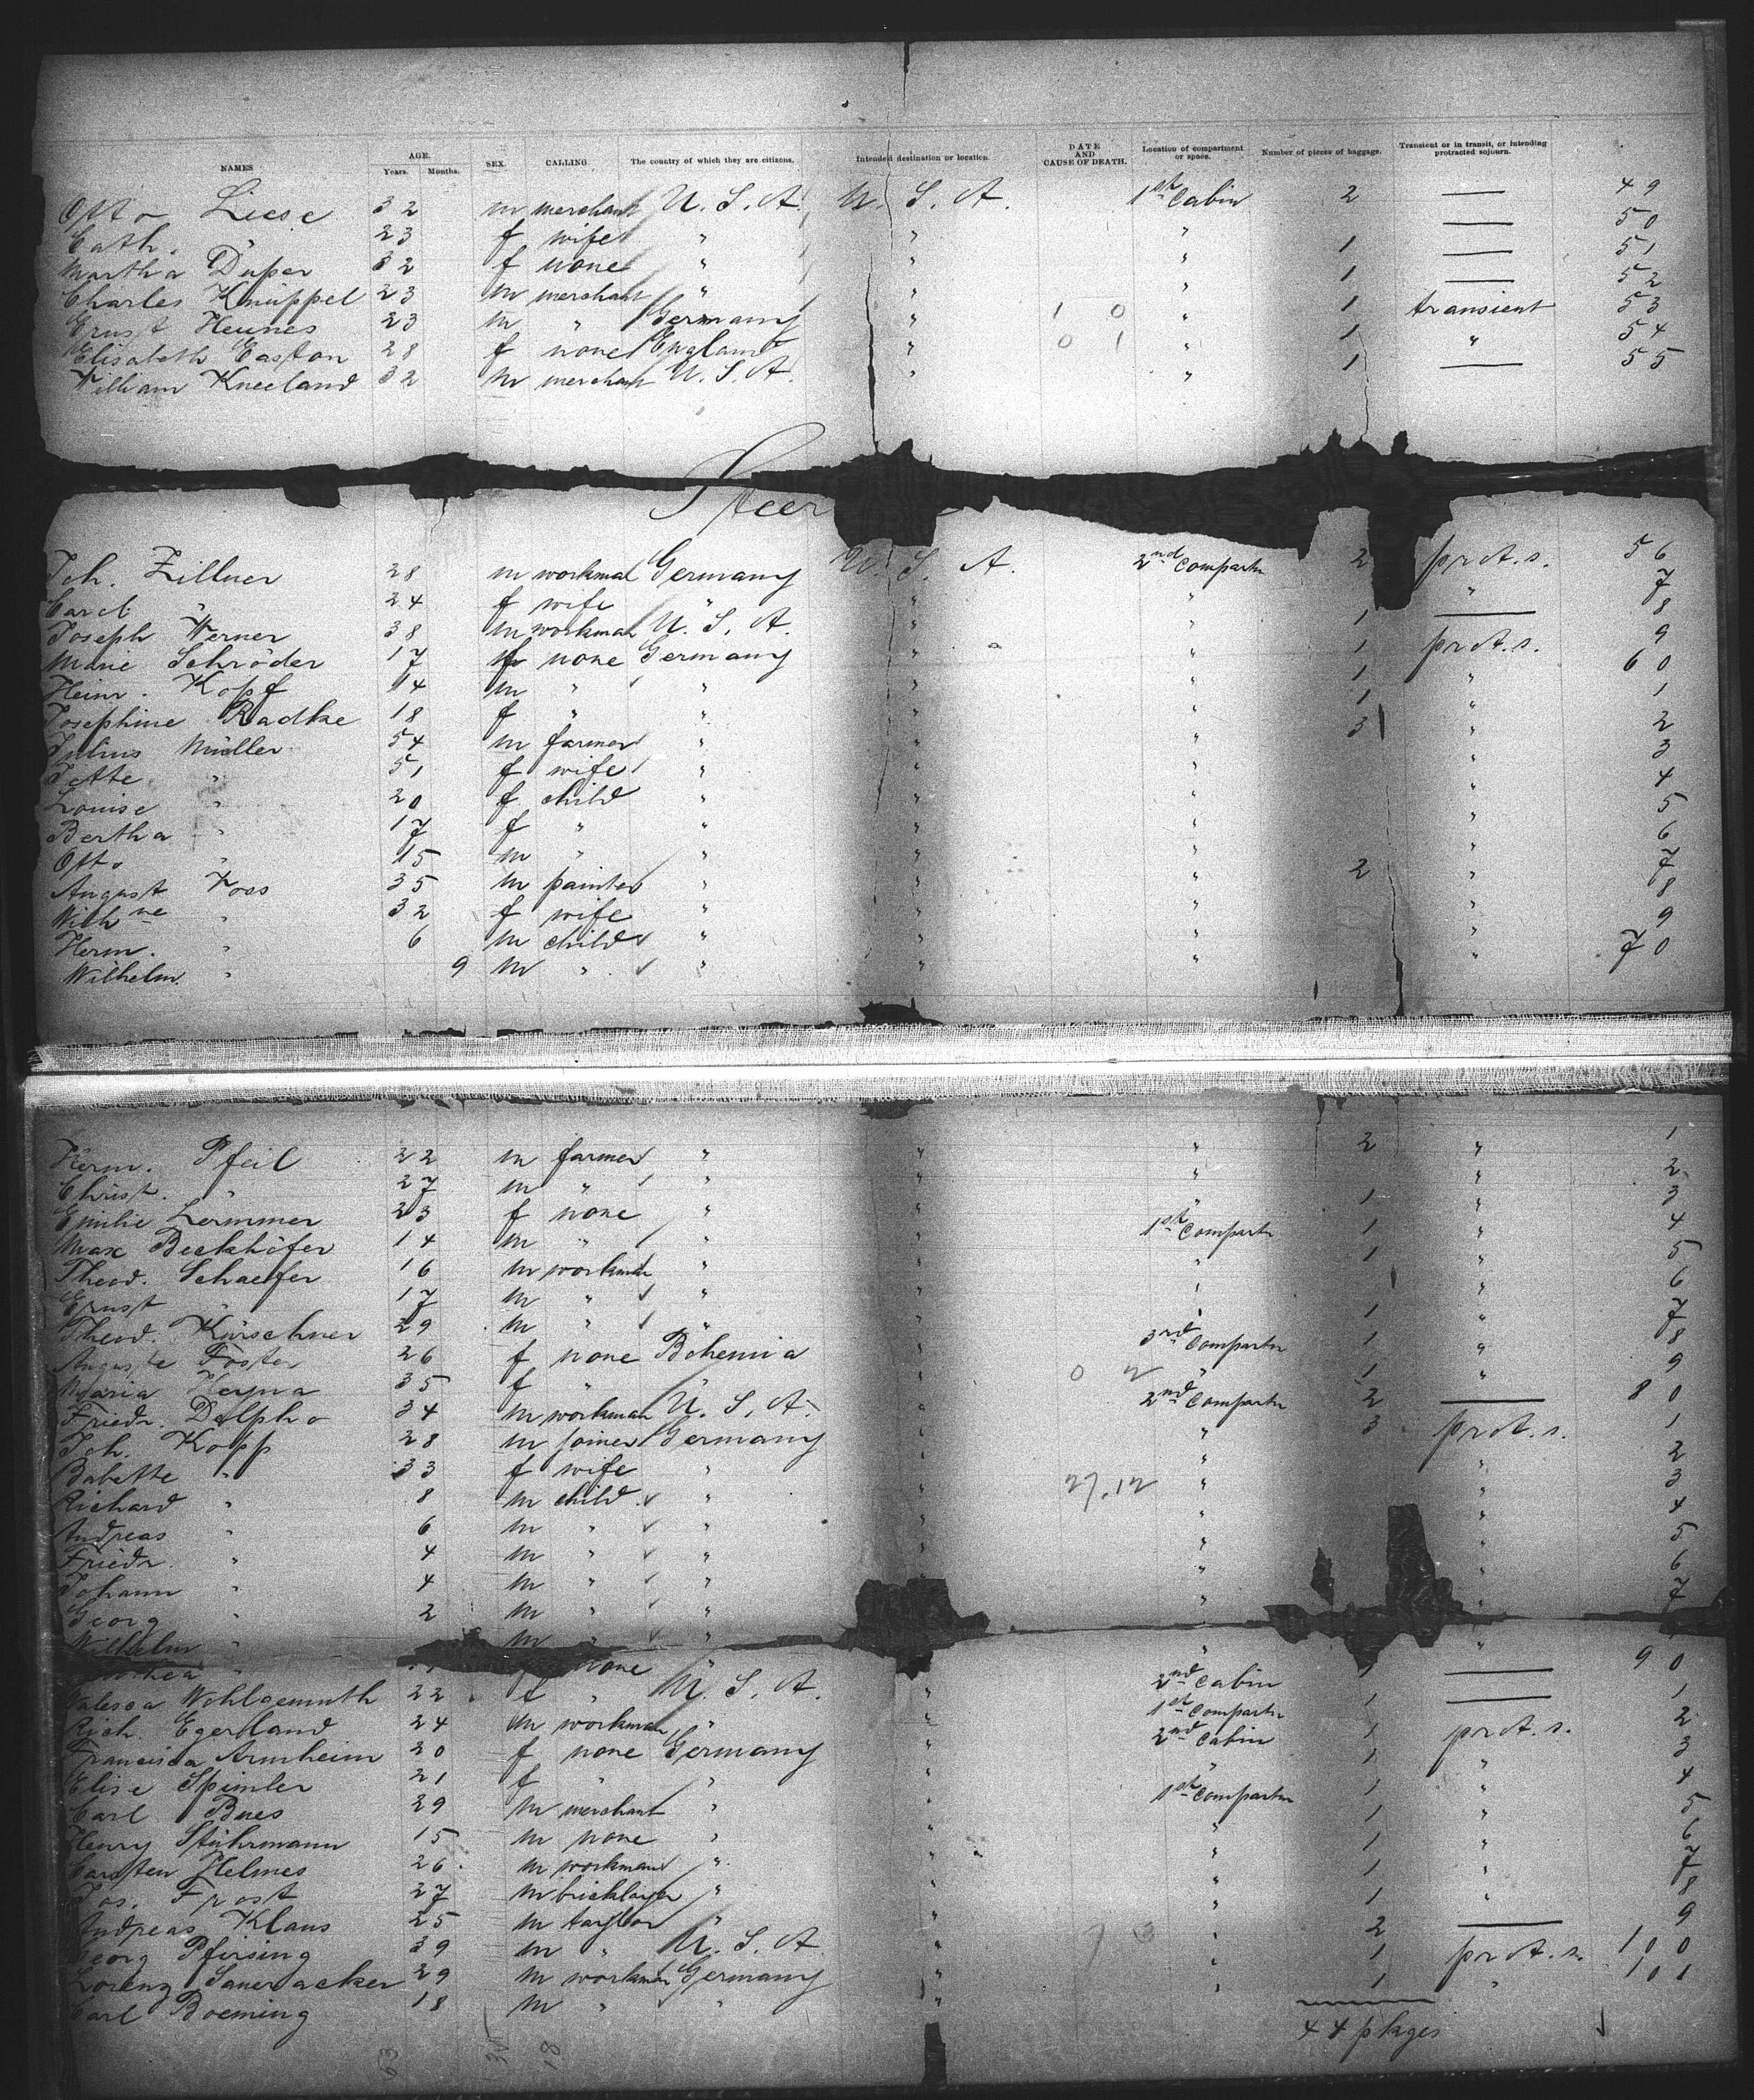 NAMES AGE. Years. Months. SEX. CALLING The country of which they are citizens. Intended destination or location. DATE AND CAUSE OF DEATH. Location of compartment or space. Number of pieces of baggage. Transient or in transit, or intending protracted sojourn.
Otto Liese 32 m merchant U.S.A. U.S.A. 1st Cabin 2 — 49
Cath. " 23 f wife " " " — 50
Martha Duper 32 f none " " " 1 — 51
Charles Knüppel 23 m merchant " " " 1 — 52
Ernst Heunes 23 m " Germany " 1 0 " 1 transient 53
Elisabeth Easton 28 f none England " 0 1 " 1 " 54
William Kneeland 32 m merchant U.S.A. " " 1 — 55
Steer
Joh. Zillner 28 m workman Germany U.S.A. 2nd Compartm 2 prot.s. 56
Carol. " 24 f wife " " " " 7
Joseph Werner 38 m workman U.S.A. " " 1 — 8
Marie Schröder 17 f none Germany " " 1 prot.s. 9
Heinr. Kopf 14 m " " " " 1 " 60
Josephine Radtke 18 f " " " " 1 " 1
Julius Müller 54 m farmer " " " 3 " 2
Jette " 51 f wife " " " " 3
Louise " 20 f child " " " " 4
Bertha " 17 f " " " " " 5
Otto " 15 m " " " " " 6
August Voss 35 m painter " " " 2 " 7
Wilhne " 32 f wife " " " " 8
Herm. " 6 m child " " " " 9
Wilhelm. " 9 m " " " " " 70
Herm. Pfeil 22 m farmer " " " 2 " 1
Christ. " 27 m " " " " " 2
Emilie Lemmer 23 f none " " " 1 " 3
Max Beckhöfer 14 m " " " 1st Compartm 1 " 4
Theod. Schaefer 16 m workman " " " 1 " 5
Ernst " 17 m " " " " " 6
Theod. Kürschner 29 m " " " " 1 " 7
Auguste Foster 26 f none Bohemia " 3rd Compartm 1 " 8
Maria Heyna 35 f " " " 0 2 " 1 " 9
Friedr. Dolpho 34 m workman U.S.A. " 2nd Compartm 2 — 80
Joh. Kopp 28 m joiner Germany " " 3 prot.s. 1
Babette " 33 f wife " " " " 2
Richard " 8 m child " " 27.12 " " 3
Andreas " 6 m " " " " " 4
Friedr. " 4 m " " " " " 5
Johann " 4 m " " " " " 6
Georg " 2 m " " " " " 7
Wilhelm " m " " " "
" none "
Valesca Wohlgemuth 22 f " U.S.A. " 2nd Cabin — 90
Rich. Egerland 24 m workman " " 1st Compartm 1 — 1
Francisca Arnheim 20 f none Germany " 2nd Cabin 1 prot.s. 2
Elise Spimler 21 f " " " " 1 " 3
Carl Bues 29 m merchant " " 1st Compartm 1 " 4
Henry Stührmann 15 m none " " " 1 " 5
Carsten Helmes 26 m workman " " " 1 " 6
Jos. Frost 27 m bricklayer " " " 1 " 7
Andreas Klaus 25 m taylor " " " 1 " 8
Georg Pfirsing 39 m " U.S.A. " " 2 — 9
Lorenz Sameracker 29 m workman Germany " " 1 prot.s. 100
Carl Boeming 18 m " " " " 1 " 101
44 pkges
63 18